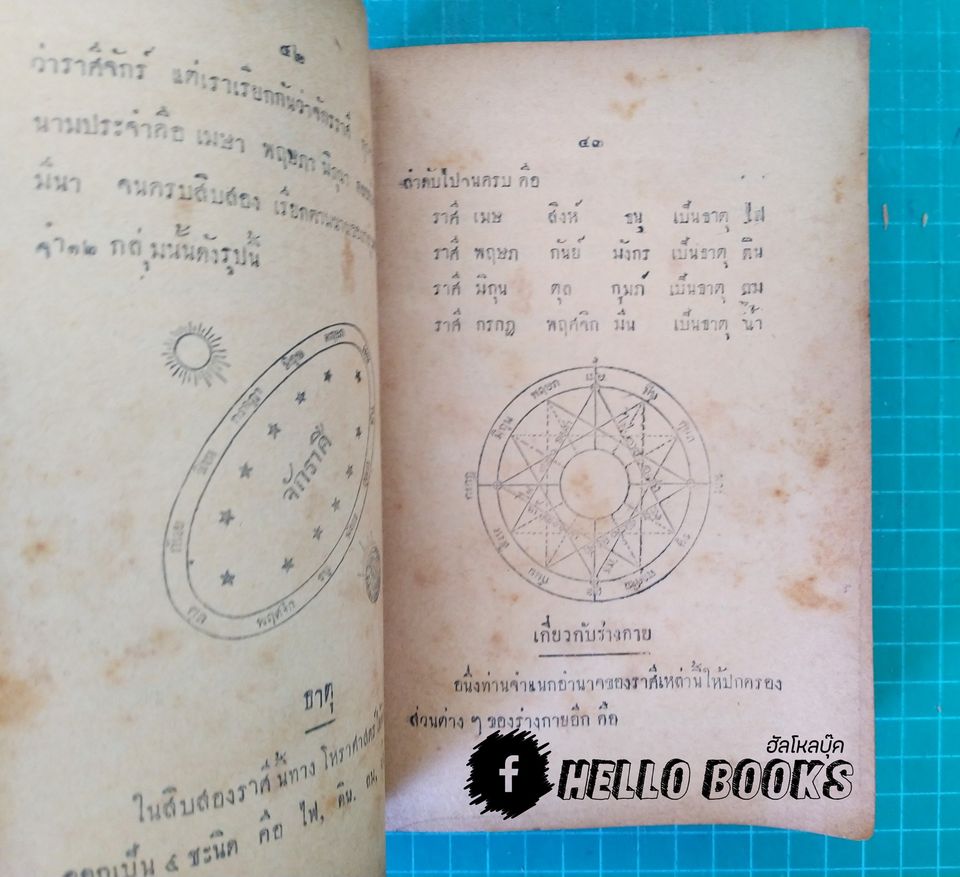 ๔๒
ว่าราศีจักร์ แต่เราเรียกกันว่าจักรราศี
นามประจำคือ เมษา พฤษภา มิถุนา
มีนา จนครบสิบสอง เรียกตาม
จำ๑๒ กลุ่มนั้นดังรูปนี้
พฤษภ
มิถุน
จักราศี
กันย์
ตุล
พฤศจิก
ธนู
ธาตุ
ในสิบสองราศีนี้ทาง โหราศาสตร์
ออกเป็น ๔ ชะนิด คือ ไฟ, ดิน, ลม,
๔๓
ลำดับไปจนครบ คือ
ราศี เมษ สิงห์ ธนู เป็นธาตุ ไฟ
ราศี พฤษภ กันย์ มังกร เป็นธาตุ ดิน
ราศี มิถุน ตุล กุมภ์ เป็นธาตุ ลม
ราศี กรกฎ พฤศจิก มีน เป็นธาตุ น้ำ
เมษ
พฤษภ
มีน
มิถุน
กรกฎ
เกี่ยวกับร่างกาย
อนึ่งท่านจำแนกอำนาจของราศีเหล่านี้ให้ปกครอง
ส่วนต่าง ๆ ของร่างกายอีก คือ
ฮัลโหลบุ๊ค
f HELLO BOOKS